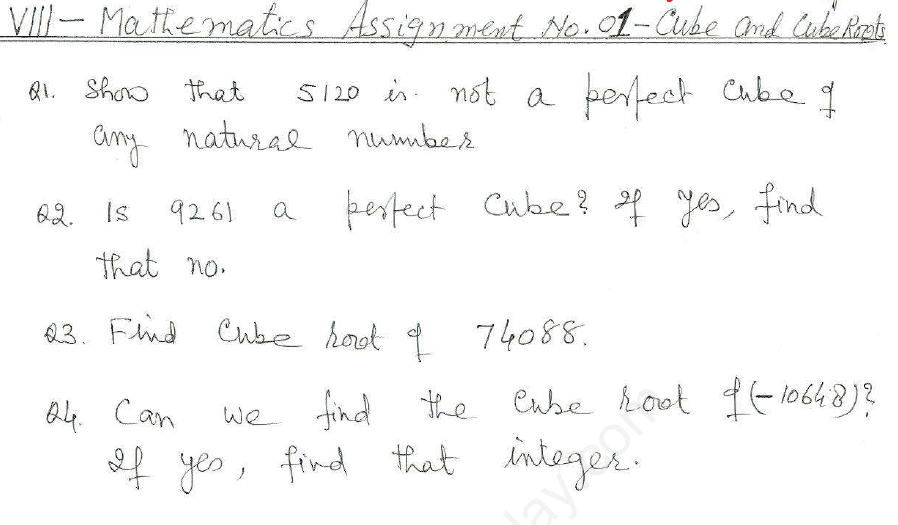 VIII - Mathematics Assignment No. 01 - Cube and Cube Roots
Q1. Show that 5120 is not a perfect cube of
any natural number
Q2. Is 9261 a perfect cube? If yes, find
that no.
Q3. Find Cube root of 74088.
Q4. Can we find the cube root of (-10648)?
If yes, find that integer.